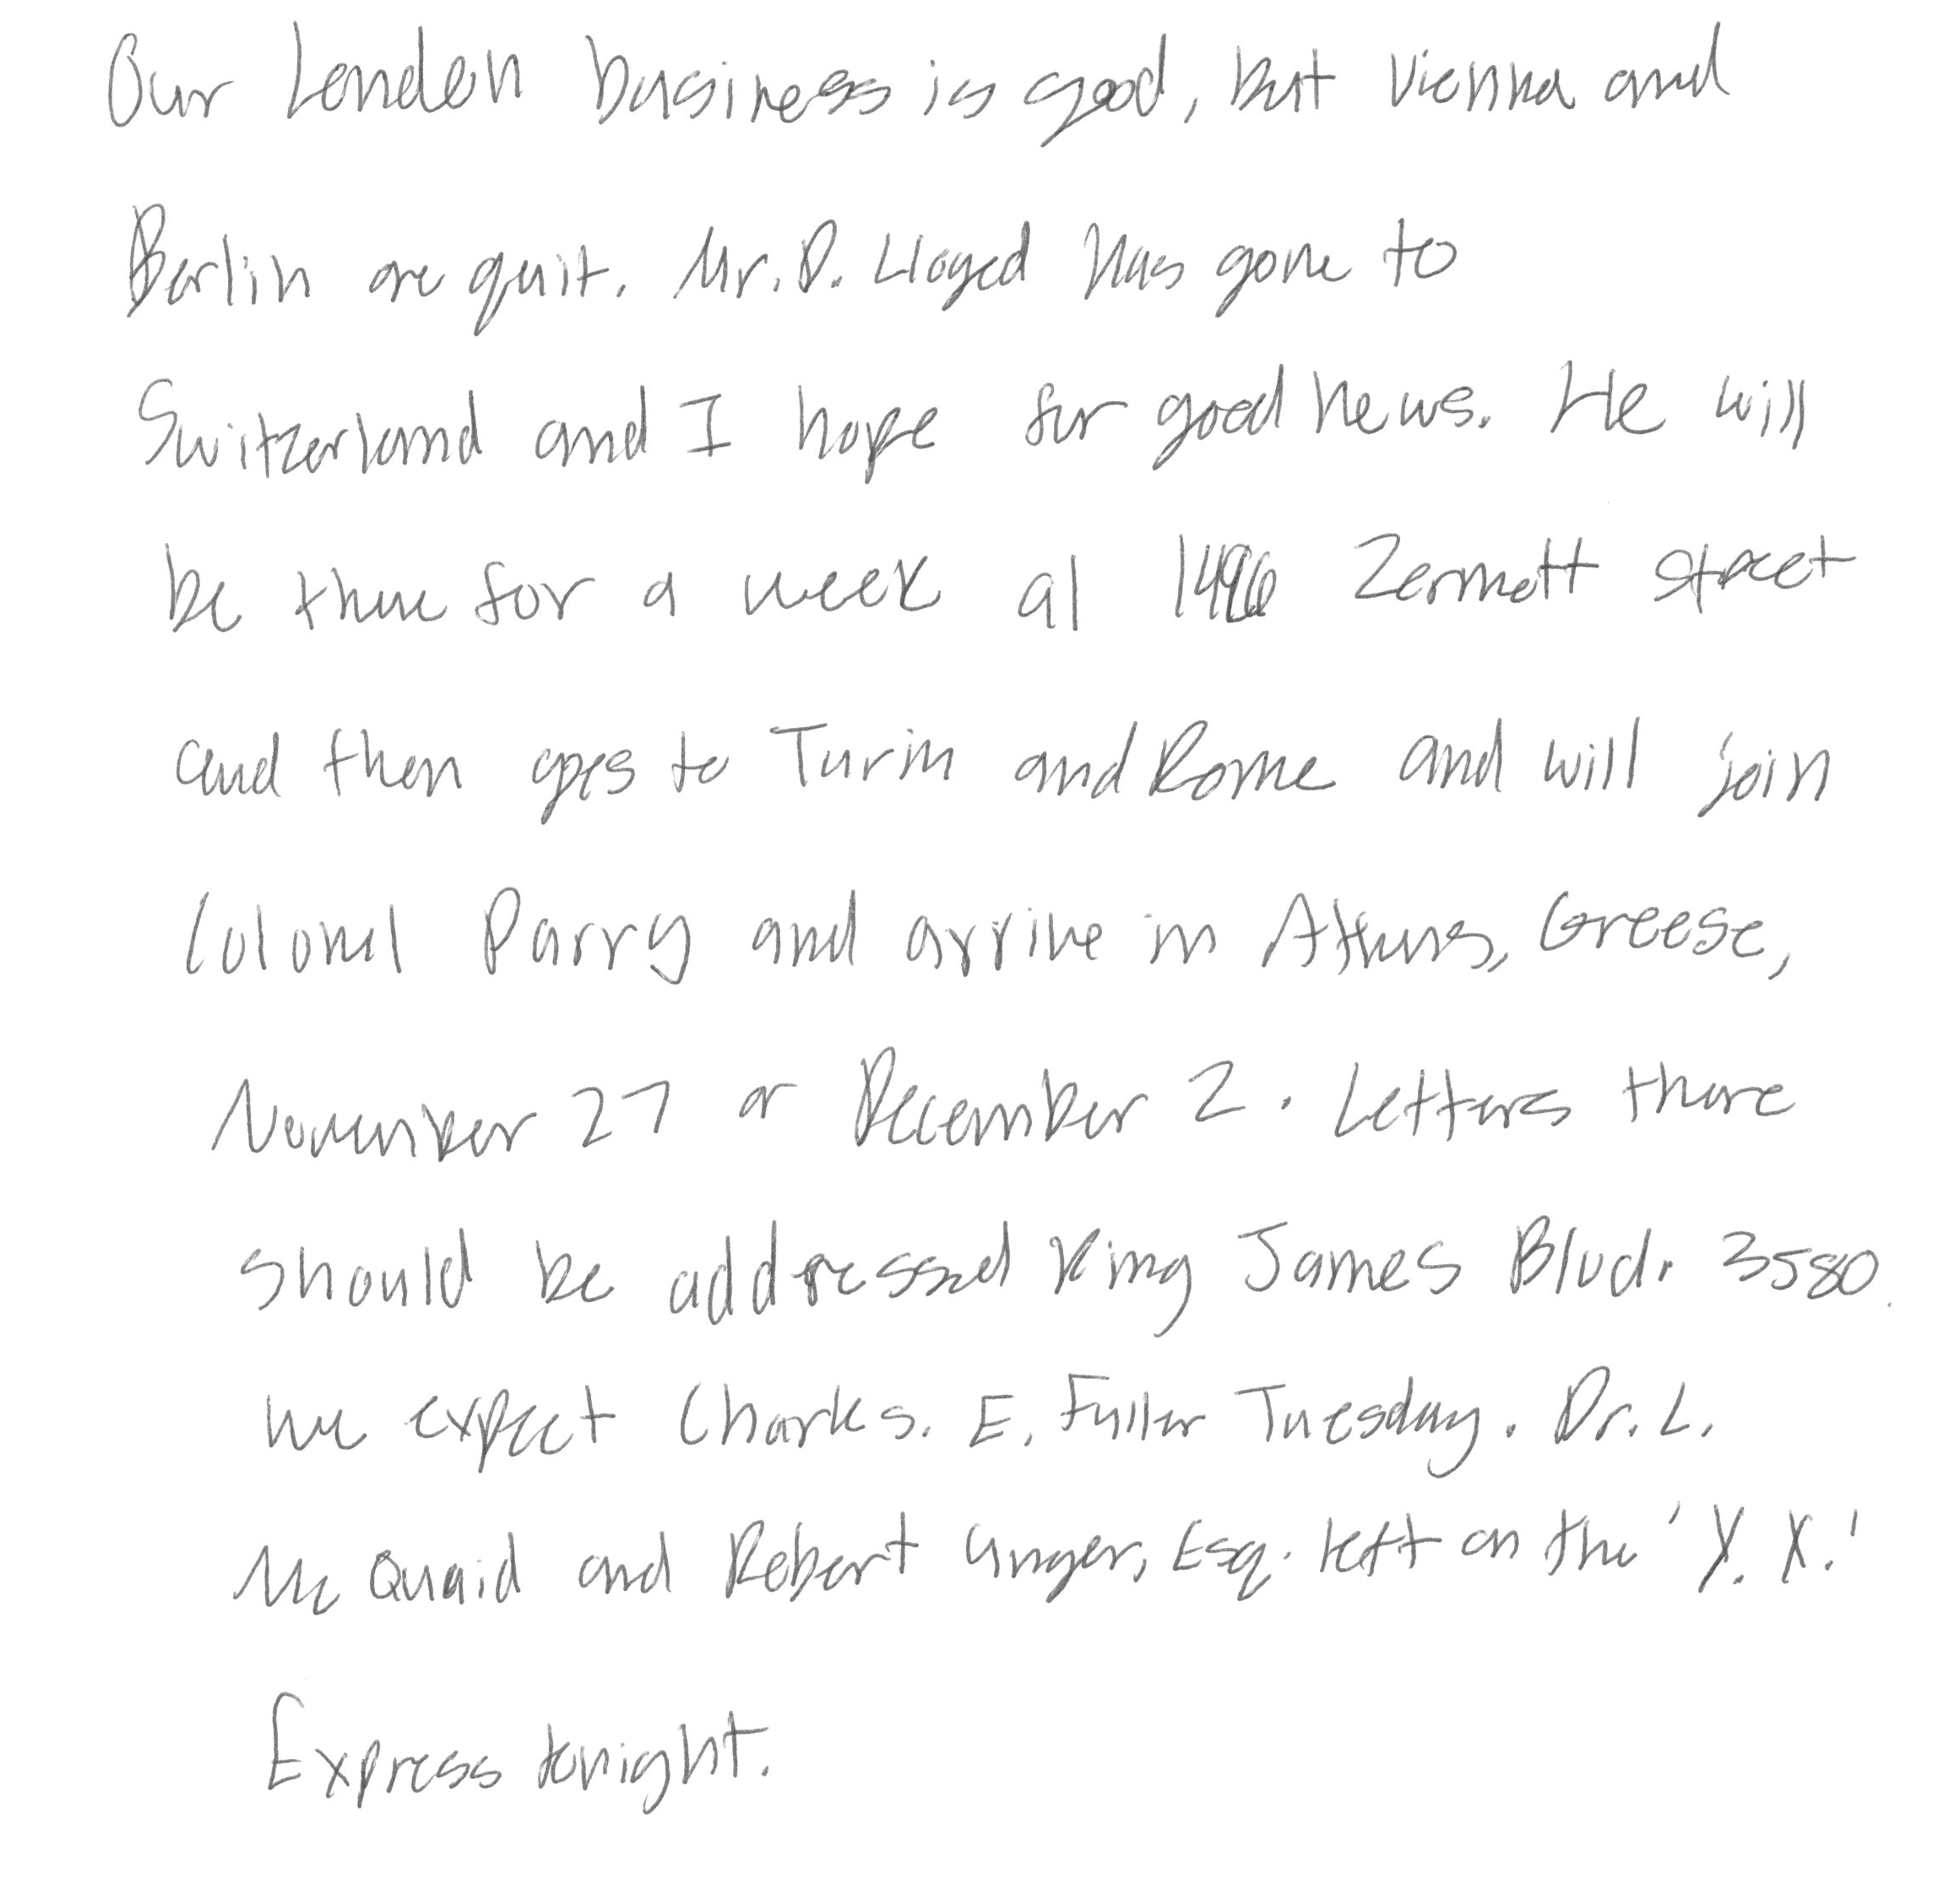 Our London business is good, but Vienna and
Berlin are quit. Mr. D. Lloyd has gone to
Switzerland and I hope for good news. He will
be there for a week at 1496 Zermott street
and then goes to Turin and Rome and will join
Colonel Parry and arrive in Athens, Greese,
November 27 or December 2. Letters there
should be addressed King James Blvd. 3580.
We expect Charles. E. Fuller Tuesday. Dr. L.
Mc Quaid and Robert Unger, Esq. left on the 'Y. X.'
Express tonight.